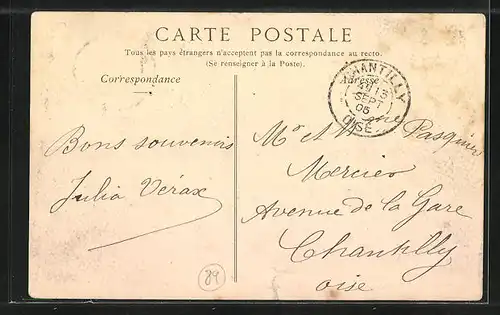 CARTE POSTALE
Tous les pays étrangers n'acceptent pas la correspondance au recto.
(Se renseigner à la Poste).
Correspondance
Adresse
CHANTILLY
13
SEPT
OISE
Bons souvenirs
Julia Vérax
Mr et Mme Pasquier
Mercier
Avenue de la Gare
Chantilly
Oise
89